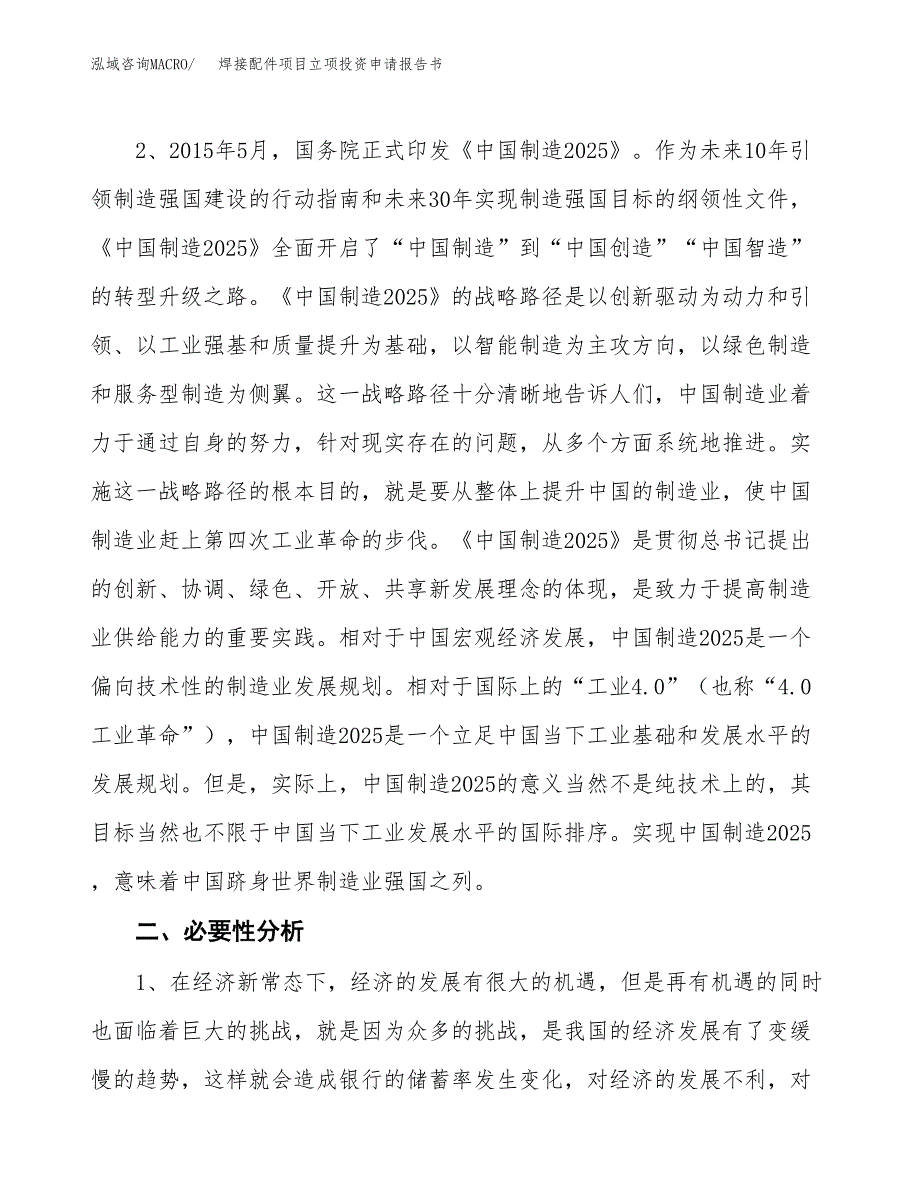 泓域咨询MACRO/ 焊接配件项目立项投资申请报告书
2、2015年5月，国务院正式印发《中国制造2025》。作为未来10年引
领制造强国建设的行动指南和未来30年实现制造强国目标的纲领性文件，
《中国制造2025》全面开启了“中国制造”到“中国创造”“中国智造”
的转型升级之路。《中国制造2025》的战略路径是以创新驱动为动力和引
领、以工业强基和质量提升为基础，以智能制造为主攻方向，以绿色制造
和服务型制造为侧翼。这一战略路径十分清晰地告诉人们，中国制造业着
力于通过自身的努力，针对现实存在的问题，从多个方面系统地推进。实
施这一战略路径的根本目的，就是要从整体上提升中国的制造业，使中国
制造业赶上第四次工业革命的步伐。《中国制造2025》是贯彻总书记提出
的创新、协调、绿色、开放、共享新发展理念的体现，是致力于提高制造
业供给能力的重要实践。相对于中国宏观经济发展，中国制造2025是一个
偏向技术性的制造业发展规划。相对于国际上的“工业4.0”（也称“4.0
工业革命”），中国制造2025是一个立足中国当下工业基础和发展水平的
发展规划。但是，实际上，中国制造2025的意义当然不是纯技术上的，其
目标当然也不限于中国当下工业发展水平的国际排序。实现中国制造2025
，意味着中国跻身世界制造业强国之列。
二、必要性分析
1、在经济新常态下，经济的发展有很大的机遇，但是再有机遇的同时
也面临着巨大的挑战，就是因为众多的挑战，是我国的经济发展有了变缓
慢的趋势，这样就会造成银行的储蓄率发生变化，对经济的发展不利，对